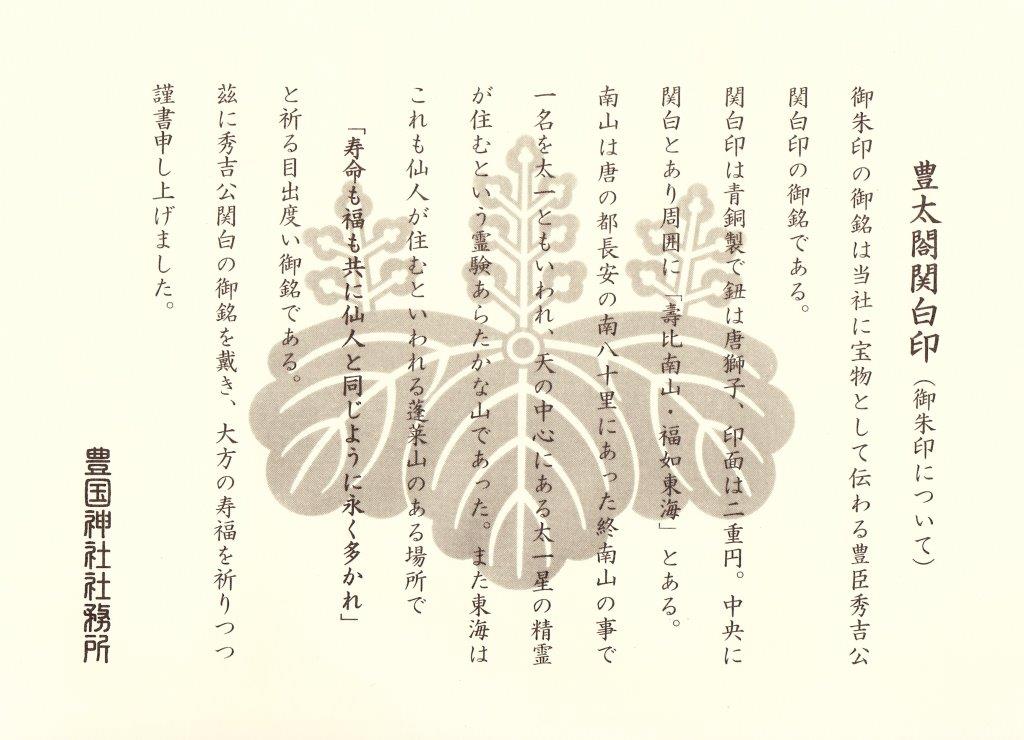 豊太閤関白印（御朱印について）
御朱印の御銘は当社に宝物として伝わる豊臣秀吉公
関白印の御銘である。
関白印は青銅製で鈕は唐獅子、印面は二重円。中央に
関白とあり周囲に「壽比南山・福如東海」とある。
南山は唐の都長安の南八十里にあった終南山の事で
一名を太一ともいわれ、天の中心にある太一星の精霊
が住むという霊験あらたかな山であった。また東海は
これも仙人が住むといわれる蓬萊山のある場所で
「寿命も福も共に仙人と同じように永く多かれ」
と祈る目出度い御銘である。
茲に秀吉公関白の御銘を戴き、大方の寿福を祈りつつ
謹書申し上げました。
豊国神社社務所